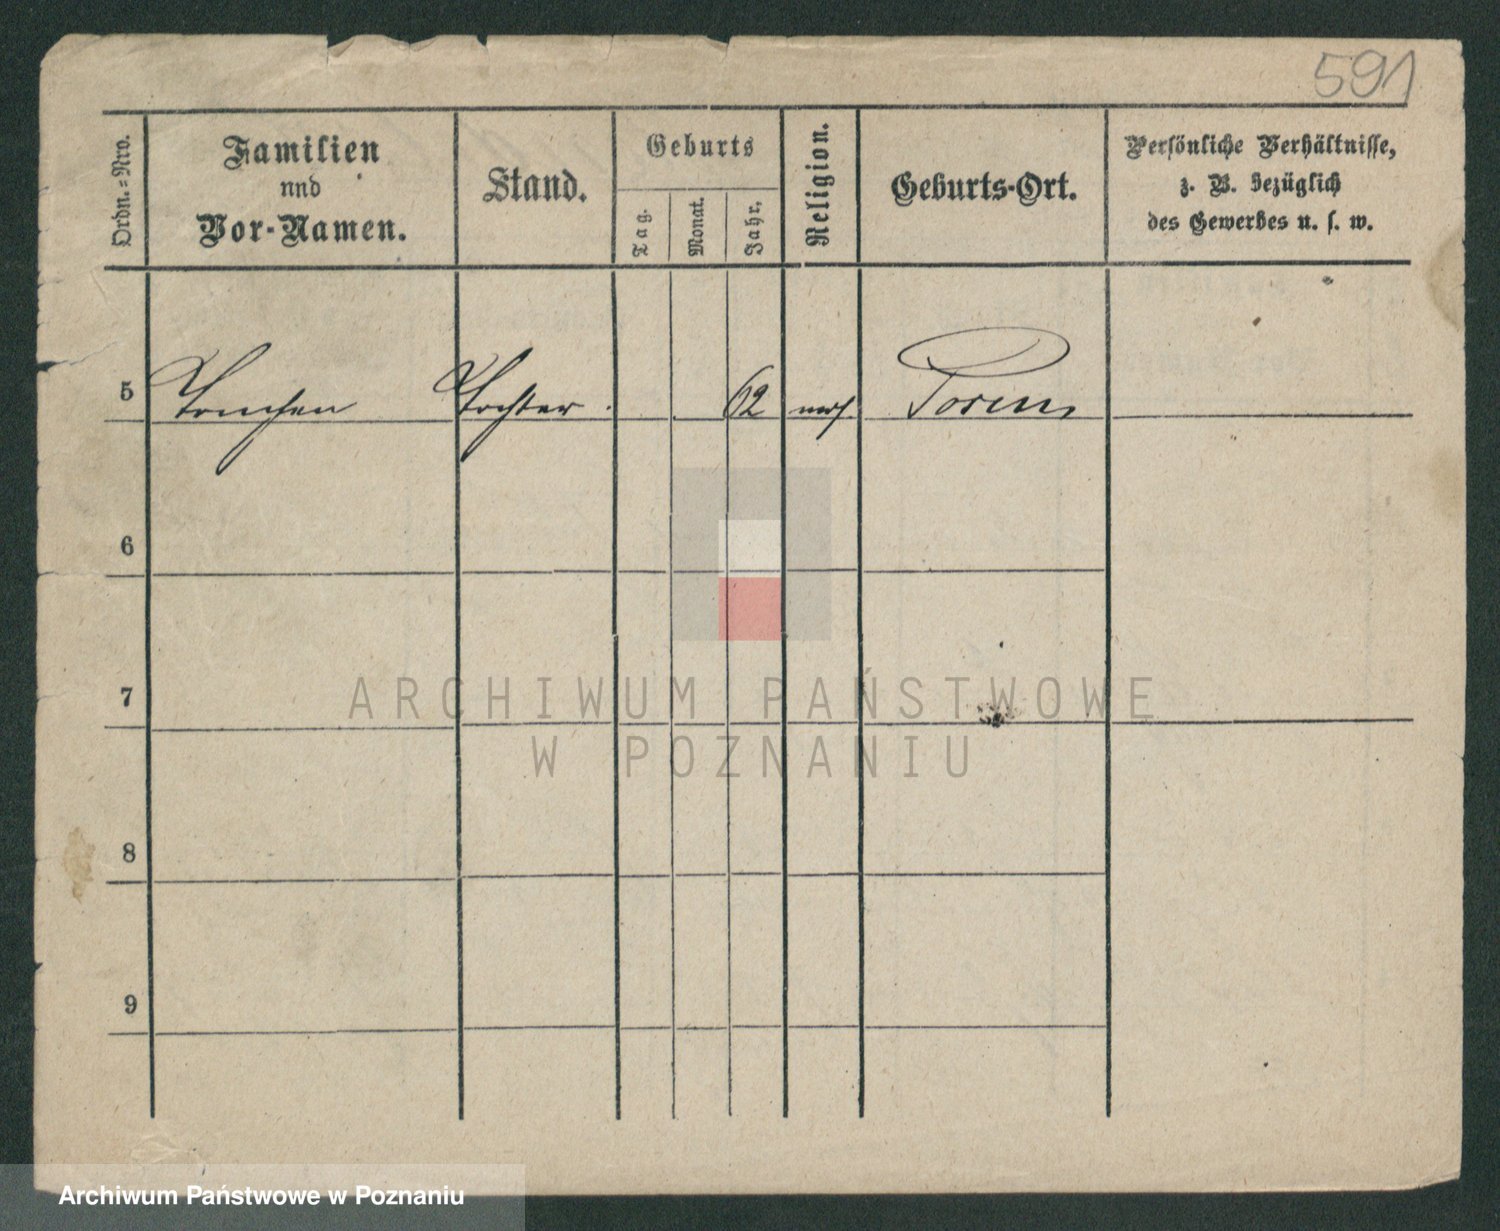 591
Ordn.=Nro.
Familien
und
Vor-Namen.
Stand.
Geburts
Tag.
Monat.
Jahr.
Religion.
Geburts-Ort.
Persönliche Verhältnisse,
z. B. bezüglich
des Gewerbes u. s. w.
5 Tochter 62 Posen
6
7
8
9
ARCHIWUM PAŃSTWOWE
W POZNANIU
Archiwum Państwowe w Poznaniu